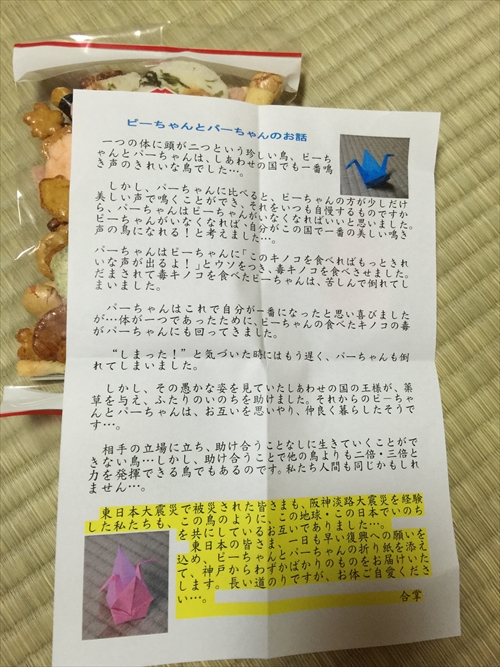 ピーちゃんとパーちゃんのお話
一つの体に頭が二つという珍しい鳥、ピーち
ゃんとパーちゃんは、しあわせの国でも一番鳴
き声のきれいな鳥でした…。
しかし、パーちゃんに比べると、ピーちゃんの方が少しだけ
美しい声で鳴くことができ、それをいつも自慢するものですか
ら、パーちゃんはピーちゃんがいなくなればいいと思いました。
ピーちゃんがいなくなれば、自分がこの国で一番の美しい鳴き
声の鳥になれる！と考えました…。
パーちゃんはピーちゃんに「このキノコを食べればもっときれ
いな声が出るよ！」とウソをつき、毒キノコを食べさせました。
だまされて毒キノコを食べたピーちゃんは、苦しんで倒れてし
まいました。
パーちゃんはこれで自分が一番になったと思い喜びました
が…体が一つであったために、ピーちゃんの食べたキノコの毒
がパーちゃんにも回ってきました。
“しまった！”と気づいた時にはもう遅く、パーちゃんも倒
れてしまいました。
しかし、その愚かな姿を見ていたしあわせの国の王様が、薬
草を与え、ふたりのいのちを助けました。それからのピーちゃ
んとパーちゃんは、お互いを思いやり、仲良く暮らしたそうで
す…。
相手の立場に立ち、助け合うことなしに生きていくことがで
きない鳥…しかし、助け合うことで他の鳥よりも二倍・三倍と
力を発揮できる鳥でもあるのです。私たち人間も同じかもしれ
ません…。
東日本大震災で被災された皆さまも、阪神淡路大震災を経験
した私たちも、この鳥のように、この地球・この日本でいのち
を共にしているお互いでありました…。
東日本の皆さま、一日も早い復興への願いを
込め、ピーちゃんとパーちゃんの折り紙を添え
て、神戸からわずかばかりのものをお届けいた
します。長い道のりですが、お体ご自愛くださ
い…。
合掌